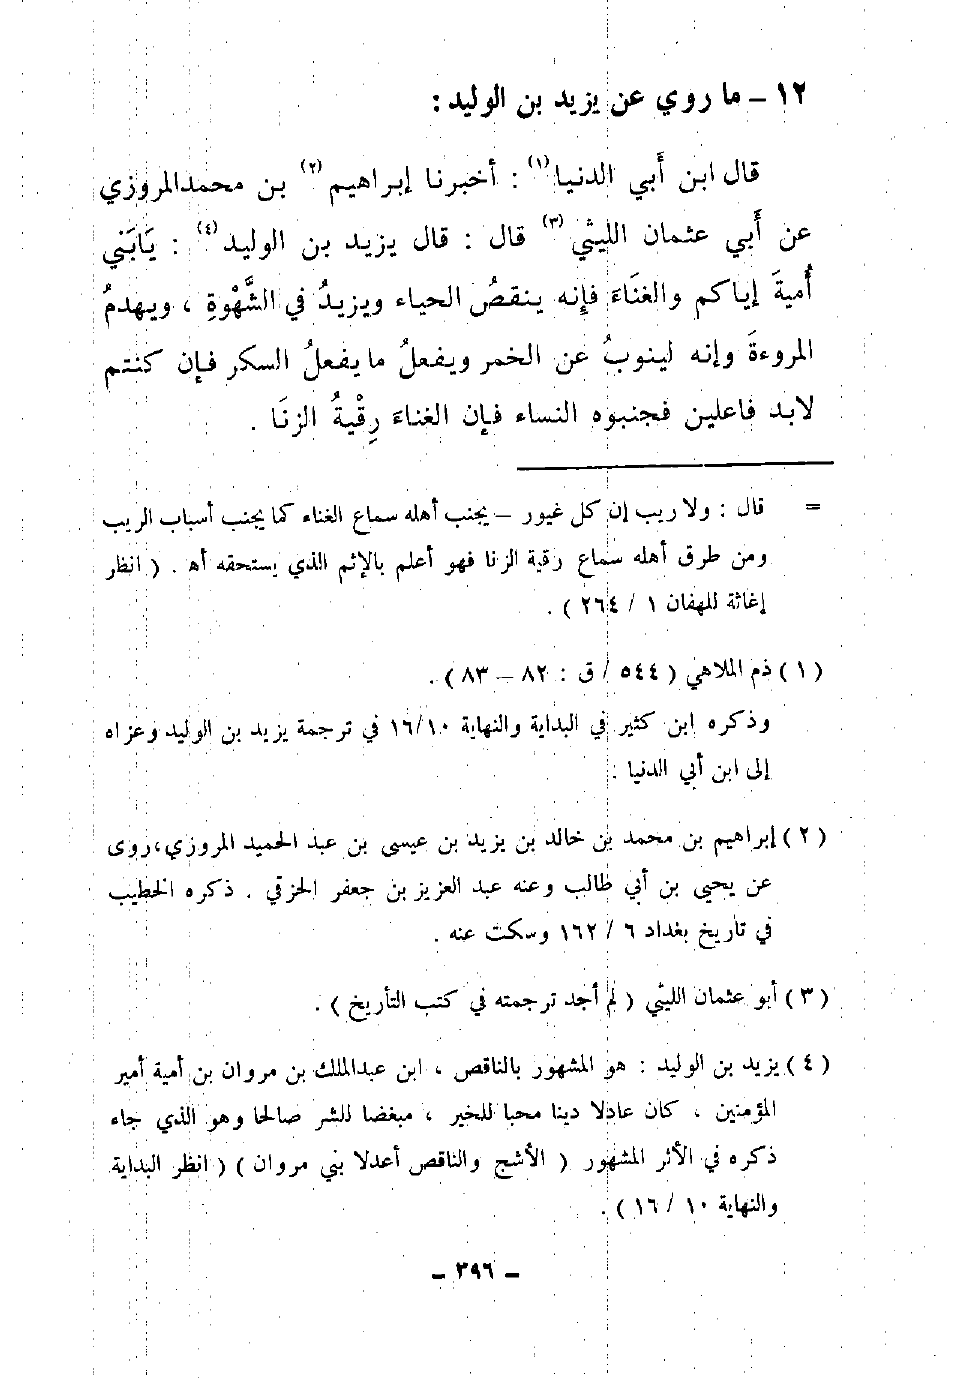 ١٢ – ما روي عن يزيد بن الوليد :
قال ابن أَبي الدنيا(١) : أخبرنا إبراهيم(٢) بن محمدالمروزي
عن أَبي عثمان الليثي(٣) قال : قال يزيد بن الوليد(٤) : يَابَني
أُميةَ إياكم والغنَاءَ فإنه ينقصُ الحياء ويزيدُ في الشَّهْوةِ ، ويهدمُ
المروءةَ وإنه لينوبُ عن الخمر ويفعلُ ما يفعلُ السكر فإن كنتم
لابد فاعلين فجنبوه النساء فإن الغناءَ رِقْيةُ الزنَا .
= قال : ولا ريب إن كل غيور – يجنب أهله سماع الغناء كما يجنب أسباب الريب
ومن طرق أهله سماع رقية الزنا فهو أعلم بالإثم الذي يستحقه أهـ . ( انظر
إغاثة للهفان ١ / ٢٦٤ ) .
( ١ ) ذم الملاهي ( ٥٤٤ / ق : ٨٢ – ٨٣ ) .
وذكره ابن كثير في البداية والنهاية ١٦/١٠ في ترجمة يزيد بن الوليد وعزاه
إلى ابن أبي الدنيا .
( ٢ ) إبراهيم بن محمد بن خالد بن يزيد بن عيسى بن عبد الحميد المروزي،روى
عن يحيى بن أبي طالب وعنه عبد العزيز بن جعفر الحزقي . ذكره الخطيب
في تاريخ بغداد ٦ / ١٦٢ وسكت عنه .
( ٣ ) أبو عثمان الليثي ( لم أجد ترجمته في كتب التأريخ ) .
( ٤ ) يزيد بن الوليد : هو المشهور بالناقص ، ابن عبدالملك بن مروان بن أمية أمير
المؤمنين ، كان عادلا دينا محبا للخير ، مبغضا للشر صالحا وهو الذي جاء
ذكره في الأثر المشهور ( الأشج والناقص أعدلا بني مروان ) ( انظر البداية
والنهاية ١٠ / ١٦ ) .
– ٣٩٦ –